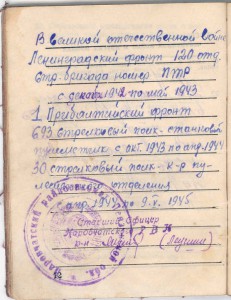 В Великой отечественной войне
Ленинградский фронт 120 отд.
стр. бригада номер ПТР
с декабр 1942 по май 1943
1 Прибалтийский фронт
693 стрелковый полк - станковый
пулеметчик с окт. 1943 по апр. 1944
30 стрелковый полк - к-р пу-
леметного отделения
с апр. 1944 по 9.X. 1945
Старший офицер
Наровчатского РВК
р-н